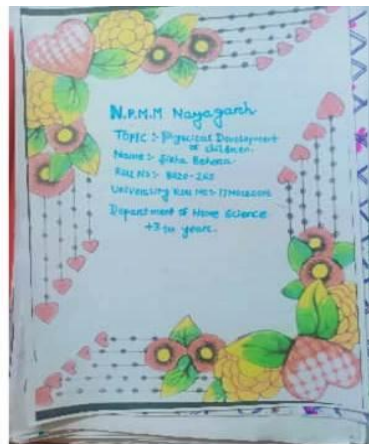 N.P.M.M Nayagarh
Topic :- Physical Development
of children.
Name :- Behera
Roll No :-
University Roll No :-
Department of Home Science
+3 years.